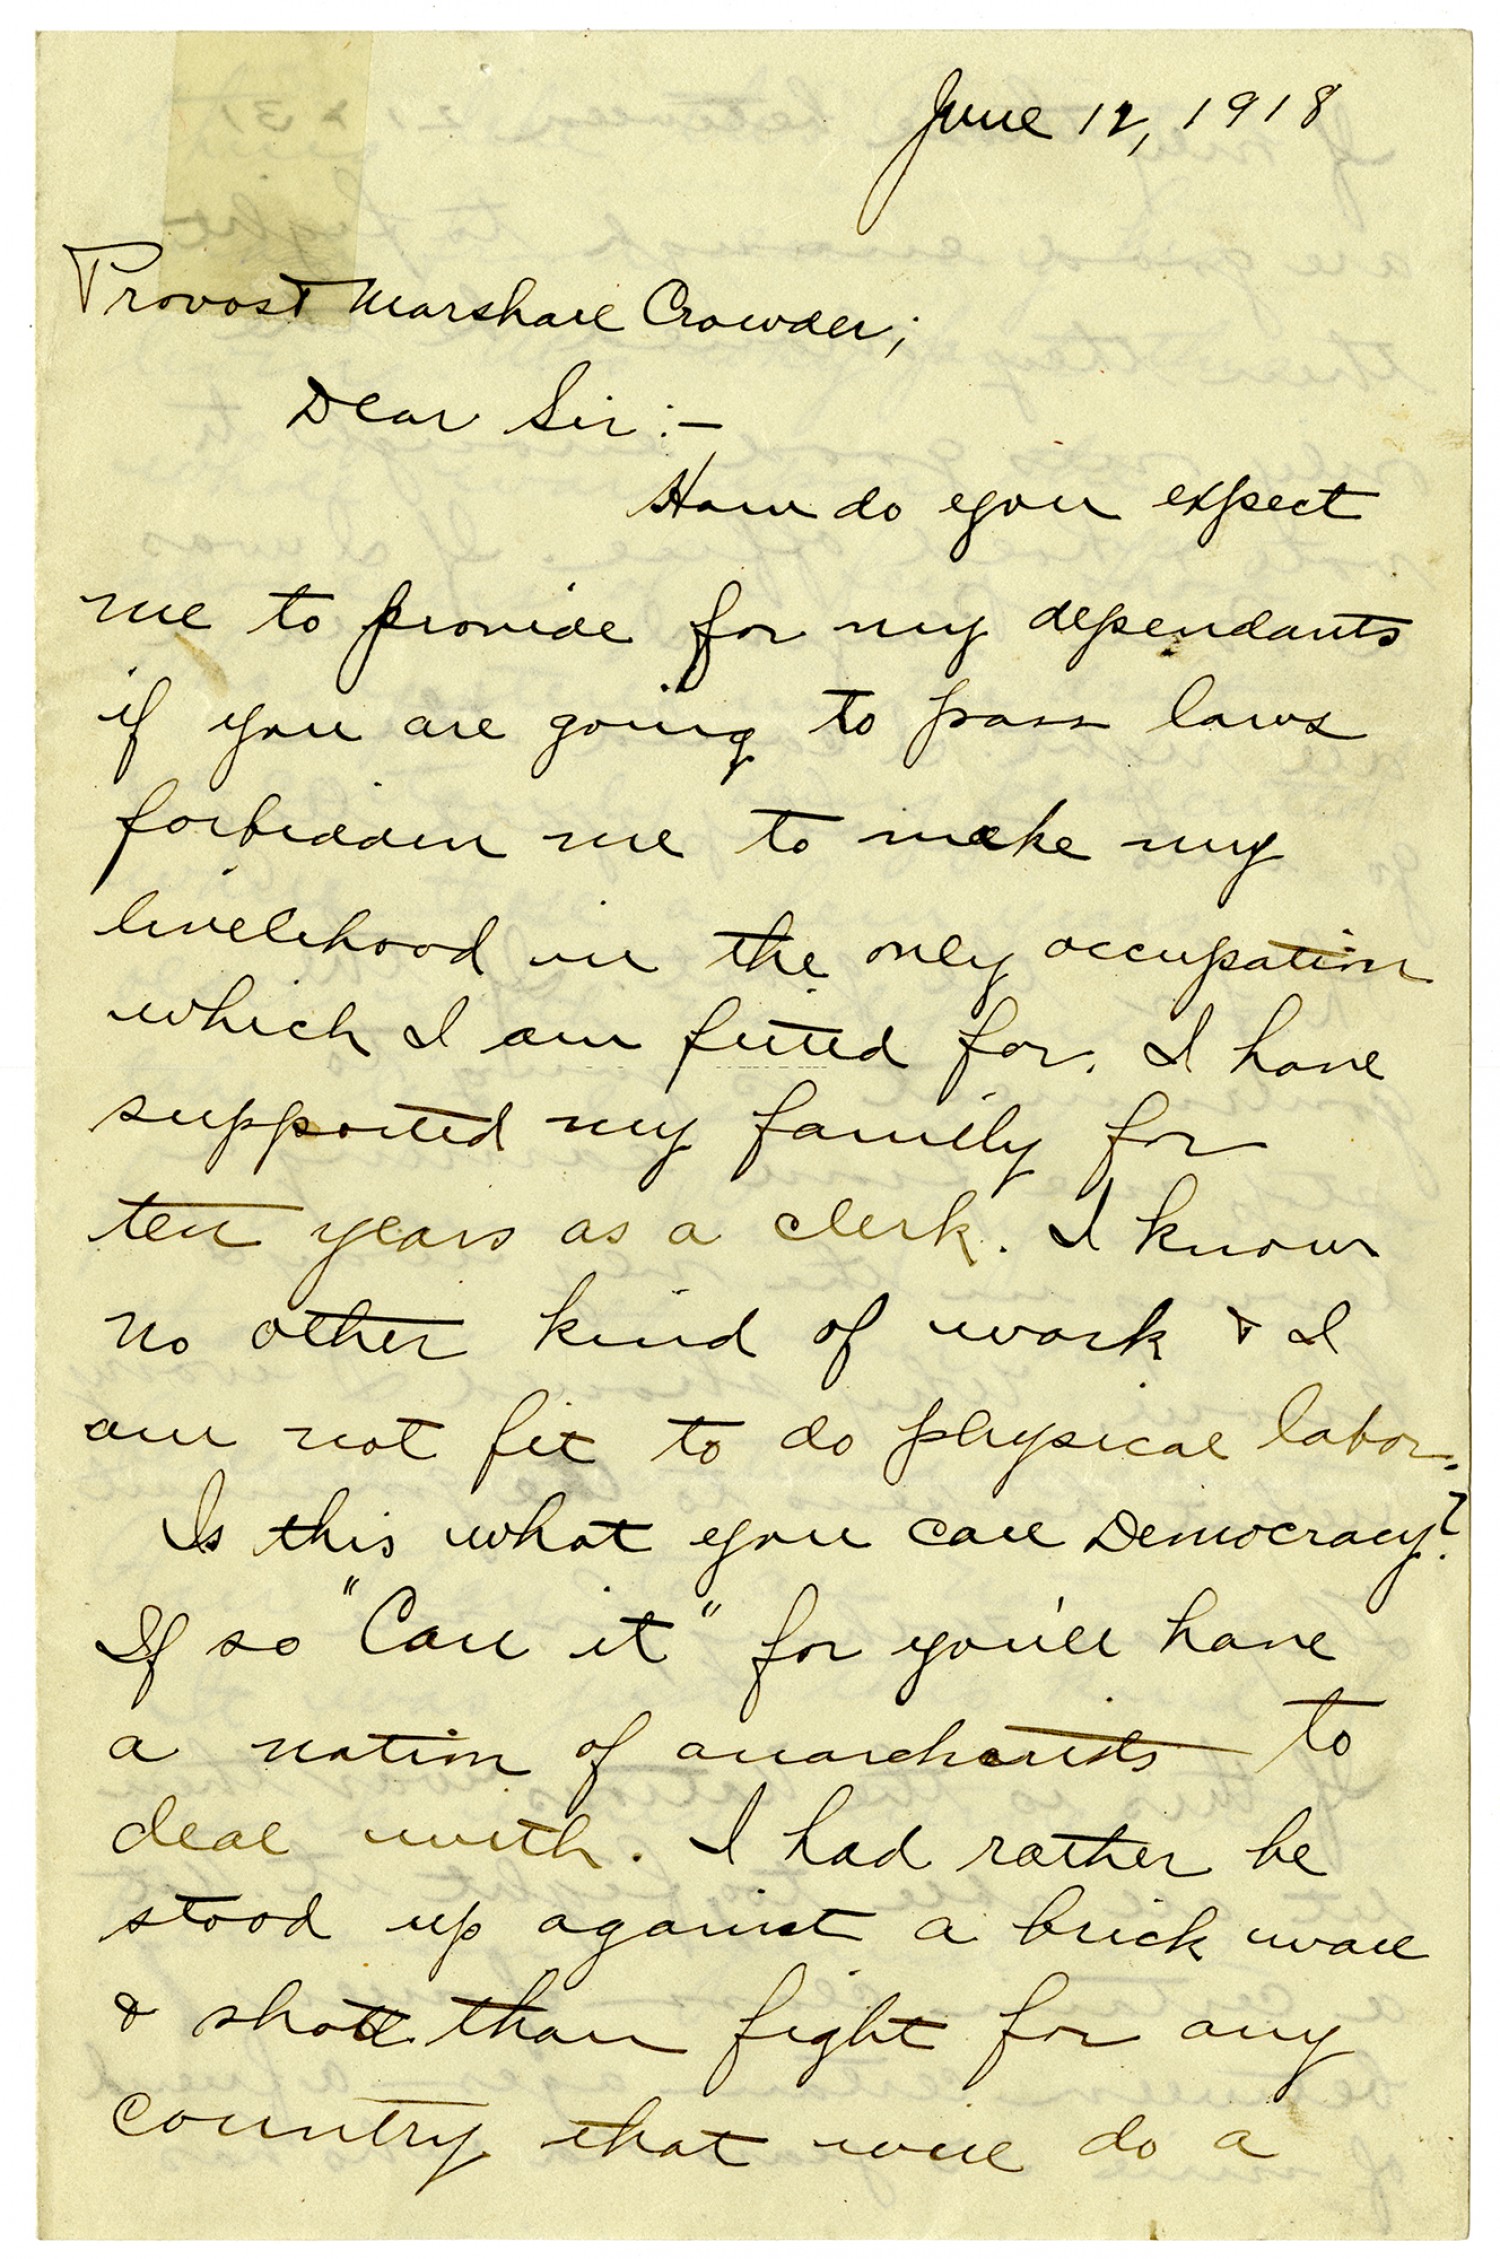 June 12, 1918
Provost Marshall Crowder;
Dear Sir:-
How do you expect
me to provide for my dependants
if you are going to pass laws
forbidden me to make my
livelihood in the only occupation
which I am fitted for. I have
supported my family for
ten years as a clerk. I know
no other kind of work & I
am not fit to do physical labor.
Is this what you call Democracy?
If so "Can it" for you'll have
a nation of anarchists to
deal with. I had rather be
stood up against a brick wall
& shot than fight for any
country that will do a